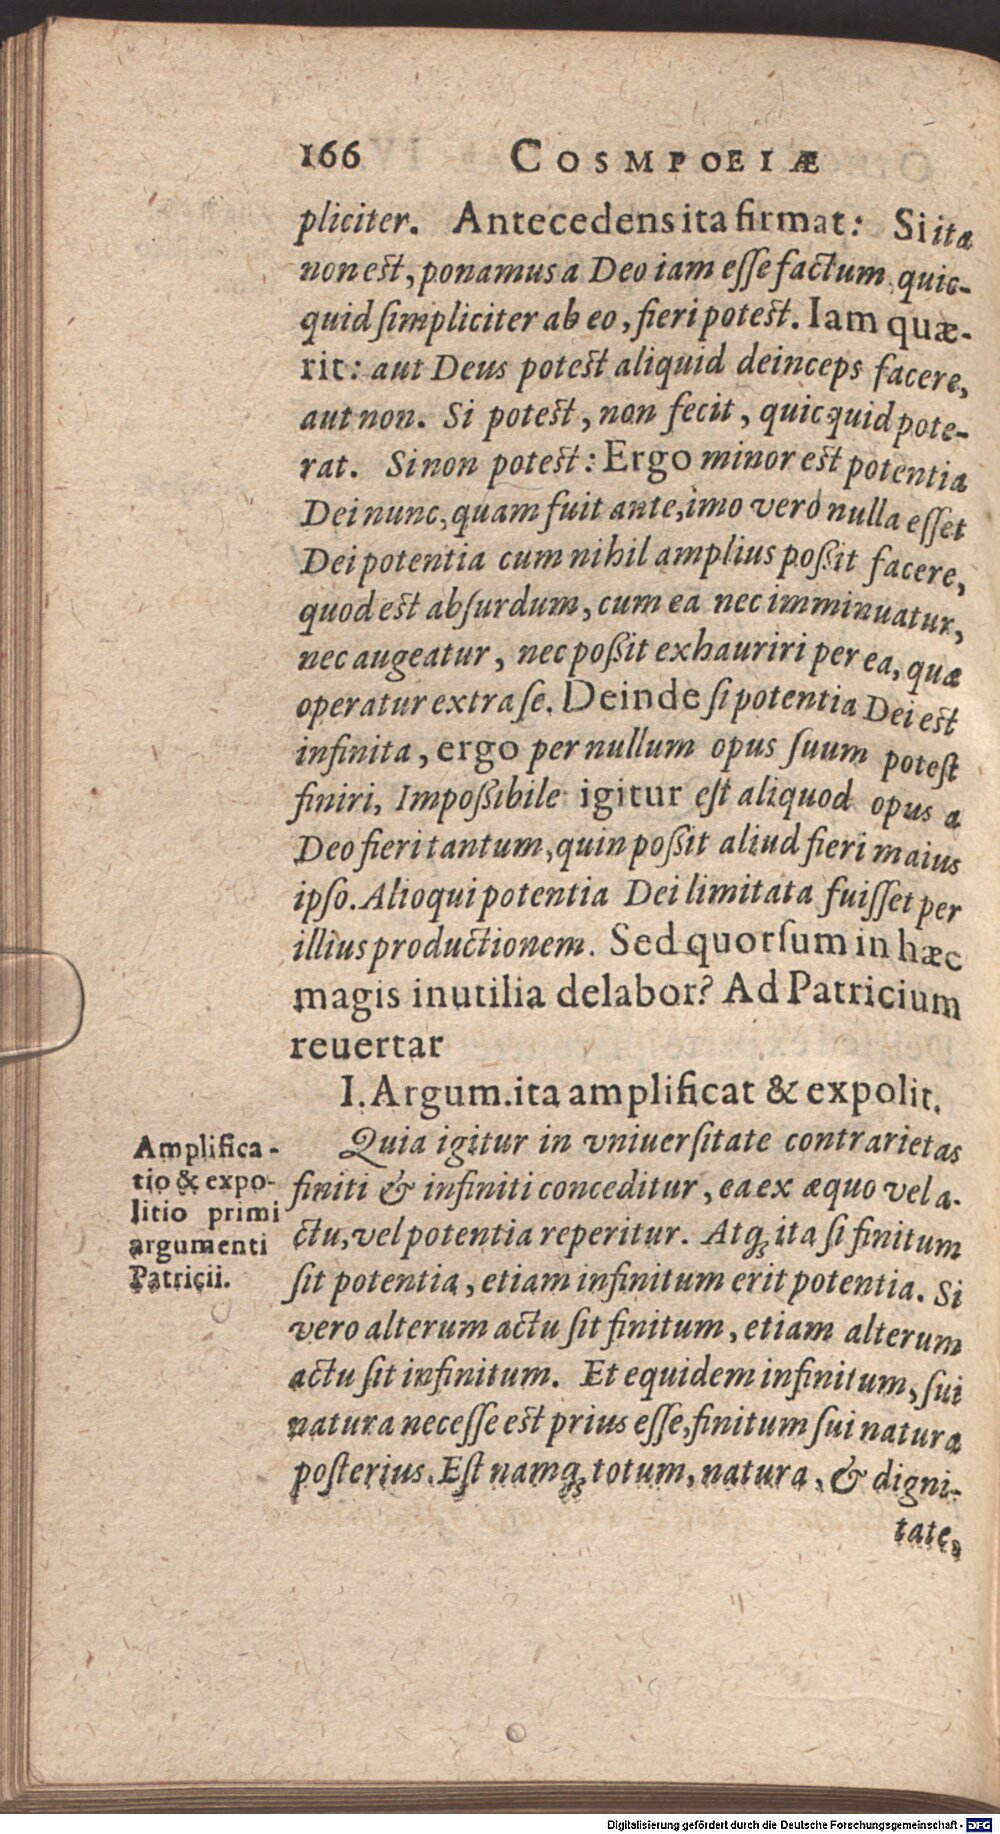 166 COSMPOEIÆ
pliciter. Antecedens ita firmat: Si ita
non est, ponamus a Deo iam esse factum quic-
quid simpliciter ab eo, fieri potest. Iam quæ-
rit: aut Deus potest aliquid deinceps facere,
aut non. Si potest, non fecit, quicquid pote-
rat. Si non potest: Ergo minor est potentia
Dei nunc, quam fuit ante, imo verò nulla esset
Dei potentia cum nihil amplius poßit facere,
quod est absurdum, cum ea nec imminuatur,
nec augeatur, nec poßit exhauriri per ea, quæ
operatur extra se. Deinde si potentia Dei est
infinita, ergo per nullum opus suum potest
finiri, Impoßibile igitur est aliquod opus a
Deo fieri tantum, quin poßit aliud fieri maius
ipso. Alioqui potentia Dei limitata fuisset per
illius productionem. Sed quorsum in hæc
magis inutilia delabor? Ad Patricium
reuertar
I. Argum. ita amplificat & expolit.
Amplifica-
tio & expo-
litio primi
argumenti
Patricii.
Quia igitur in vniuersitate contrarietas
finiti & infiniti conceditur, ea ex æquo vel a-
ctu, vel potentia reperitur. Atq; ita si finitum
sit potentia, etiam infinitum erit potentia. Si
vero alterum actu sit finitum, etiam alterum
actu sit infinitum. Et equidem infinitum, sui
natura necesse est prius esse, finitum sui natura
posterius. Est namq; totum, natura, & digni-
tate,
Digitalisierung gefördert durch die Deutsche Forschungsgemeinschaft - DFG